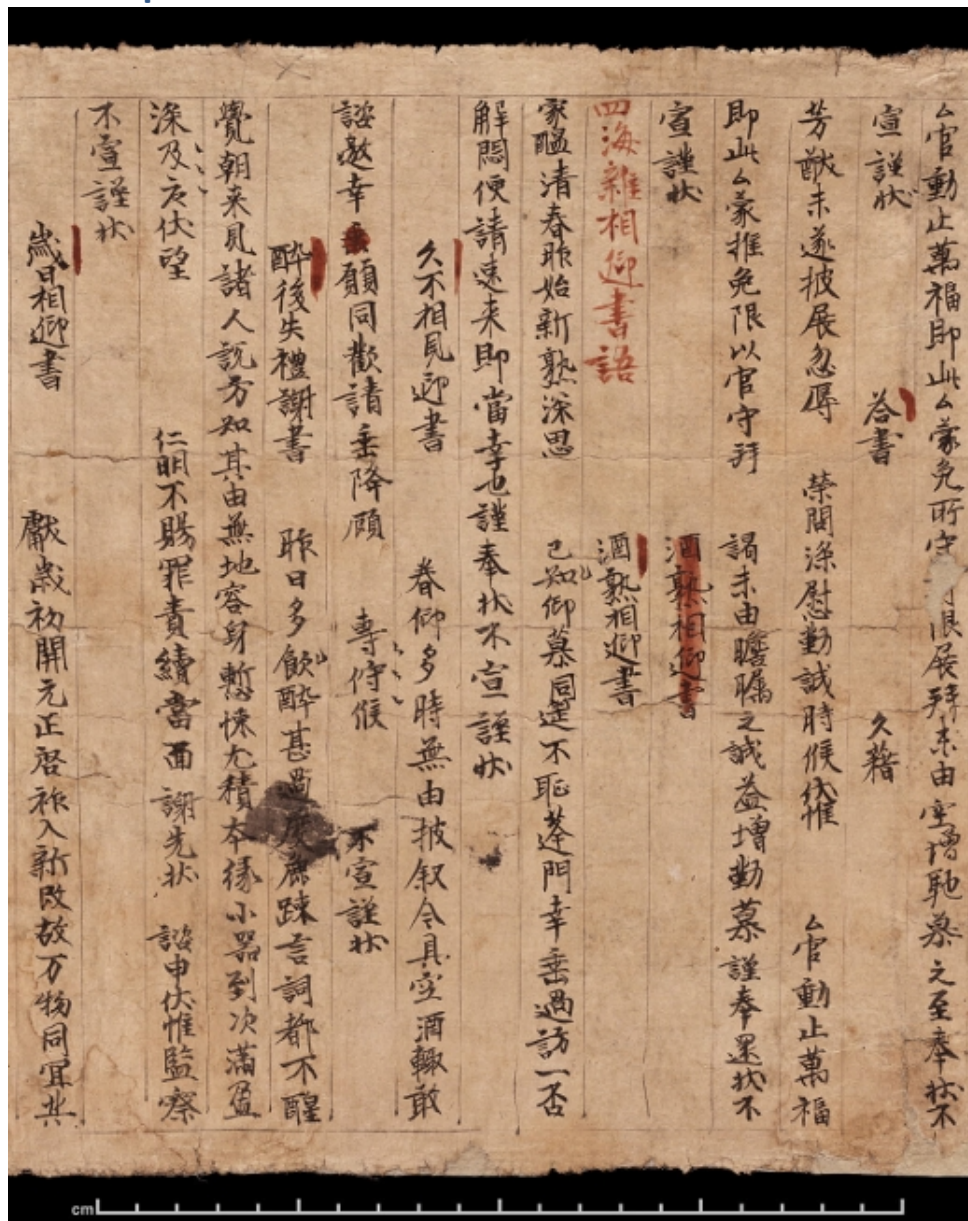 厶官動止萬福即此厶蒙免所守有限展拜未由空增馳慕之至奉狀不
宣謹狀 答書 久藉
芳猷未遂披展忽辱 榮問深慰勤誠時候伏惟 厶官動止萬福
即此厶蒙推免限以官守拜 謁未由瞻矚之誠益增勤慕謹奉還狀不
宣謹狀 酒熟相迎書
四海雜相迎書語 酒熟相迎書
家醞清春昨始新熟深思 已知仰慕同筵不恥蓬門幸垂過訪一否
解悶便請速来即當幸也謹奉狀不宣謹狀
久不相見迎書 眷仰多時無由披叙今具空酒輒敢
諮邀幸垂願同歡請垂降顧 專侍候 不宣謹狀
醉後失禮謝書 昨日多飲醉甚過度麁踈言詞都不醒
覺朝来見諸人説方知其由無地容身慙悚尤積本緣小器到次滿盈
深及尤伏望 仁明不賜罪責續當面 謝先狀 諮申伏惟監察
不宣謹狀
歲日相迎書 獻歲初開元正啓祚入新改故万物同宜共